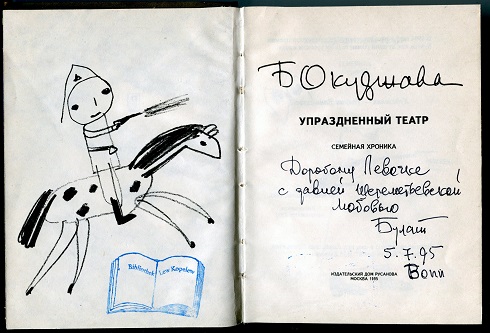 Bibliothek Lew Kopelew
Б Окуджава
УПРАЗДНЕННЫЙ ТЕАТР
СЕМЕЙНАЯ ХРОНИКА
Дорогому Левочке
с давней шереметьевской
любовью
Булат
5.7.95
Bonn
ИЗДАТЕЛЬСКИЙ ДОМ РУСАНОВА
МОСКВА 1995